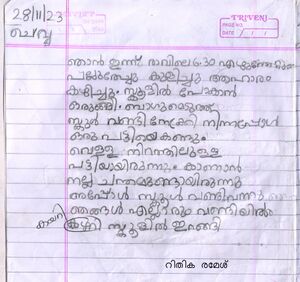 28/11/23
ചൊവ്വ
TRIVENI
PAGE NO.
DATE
ഞാൻ ഇന്ന് രവിലെ 6.30 എഴുന്നേറ്റു
പല്ലുതേച്ചു കുളിച്ചു ആഹാരം
കഴിച്ചു. സ്കൂളിൽ പോകാൻ
ഒരുങ്ങി. ബാഗുമെടുത്ത്
സ്കൂൾ വണ്ടി നോക്കി നിന്നപ്പോൾ
ഒരു പട്ടിയെ കണ്ടു.
വെള്ള നിറത്തിലുള്ള
പട്ടിയായിരുന്നു. കാണാൻ
നല്ല ചന്തമുണ്ടായിരുന്നു
അപ്പോൾ സ്കൂൾ വണ്ടി വന്നു
ഞങ്ങൾ എല്ലാരും വണ്ടിയിൽ
കയറി
സ്കൂളിൽ ഇറങ്ങി
റിതിക രമേശ്